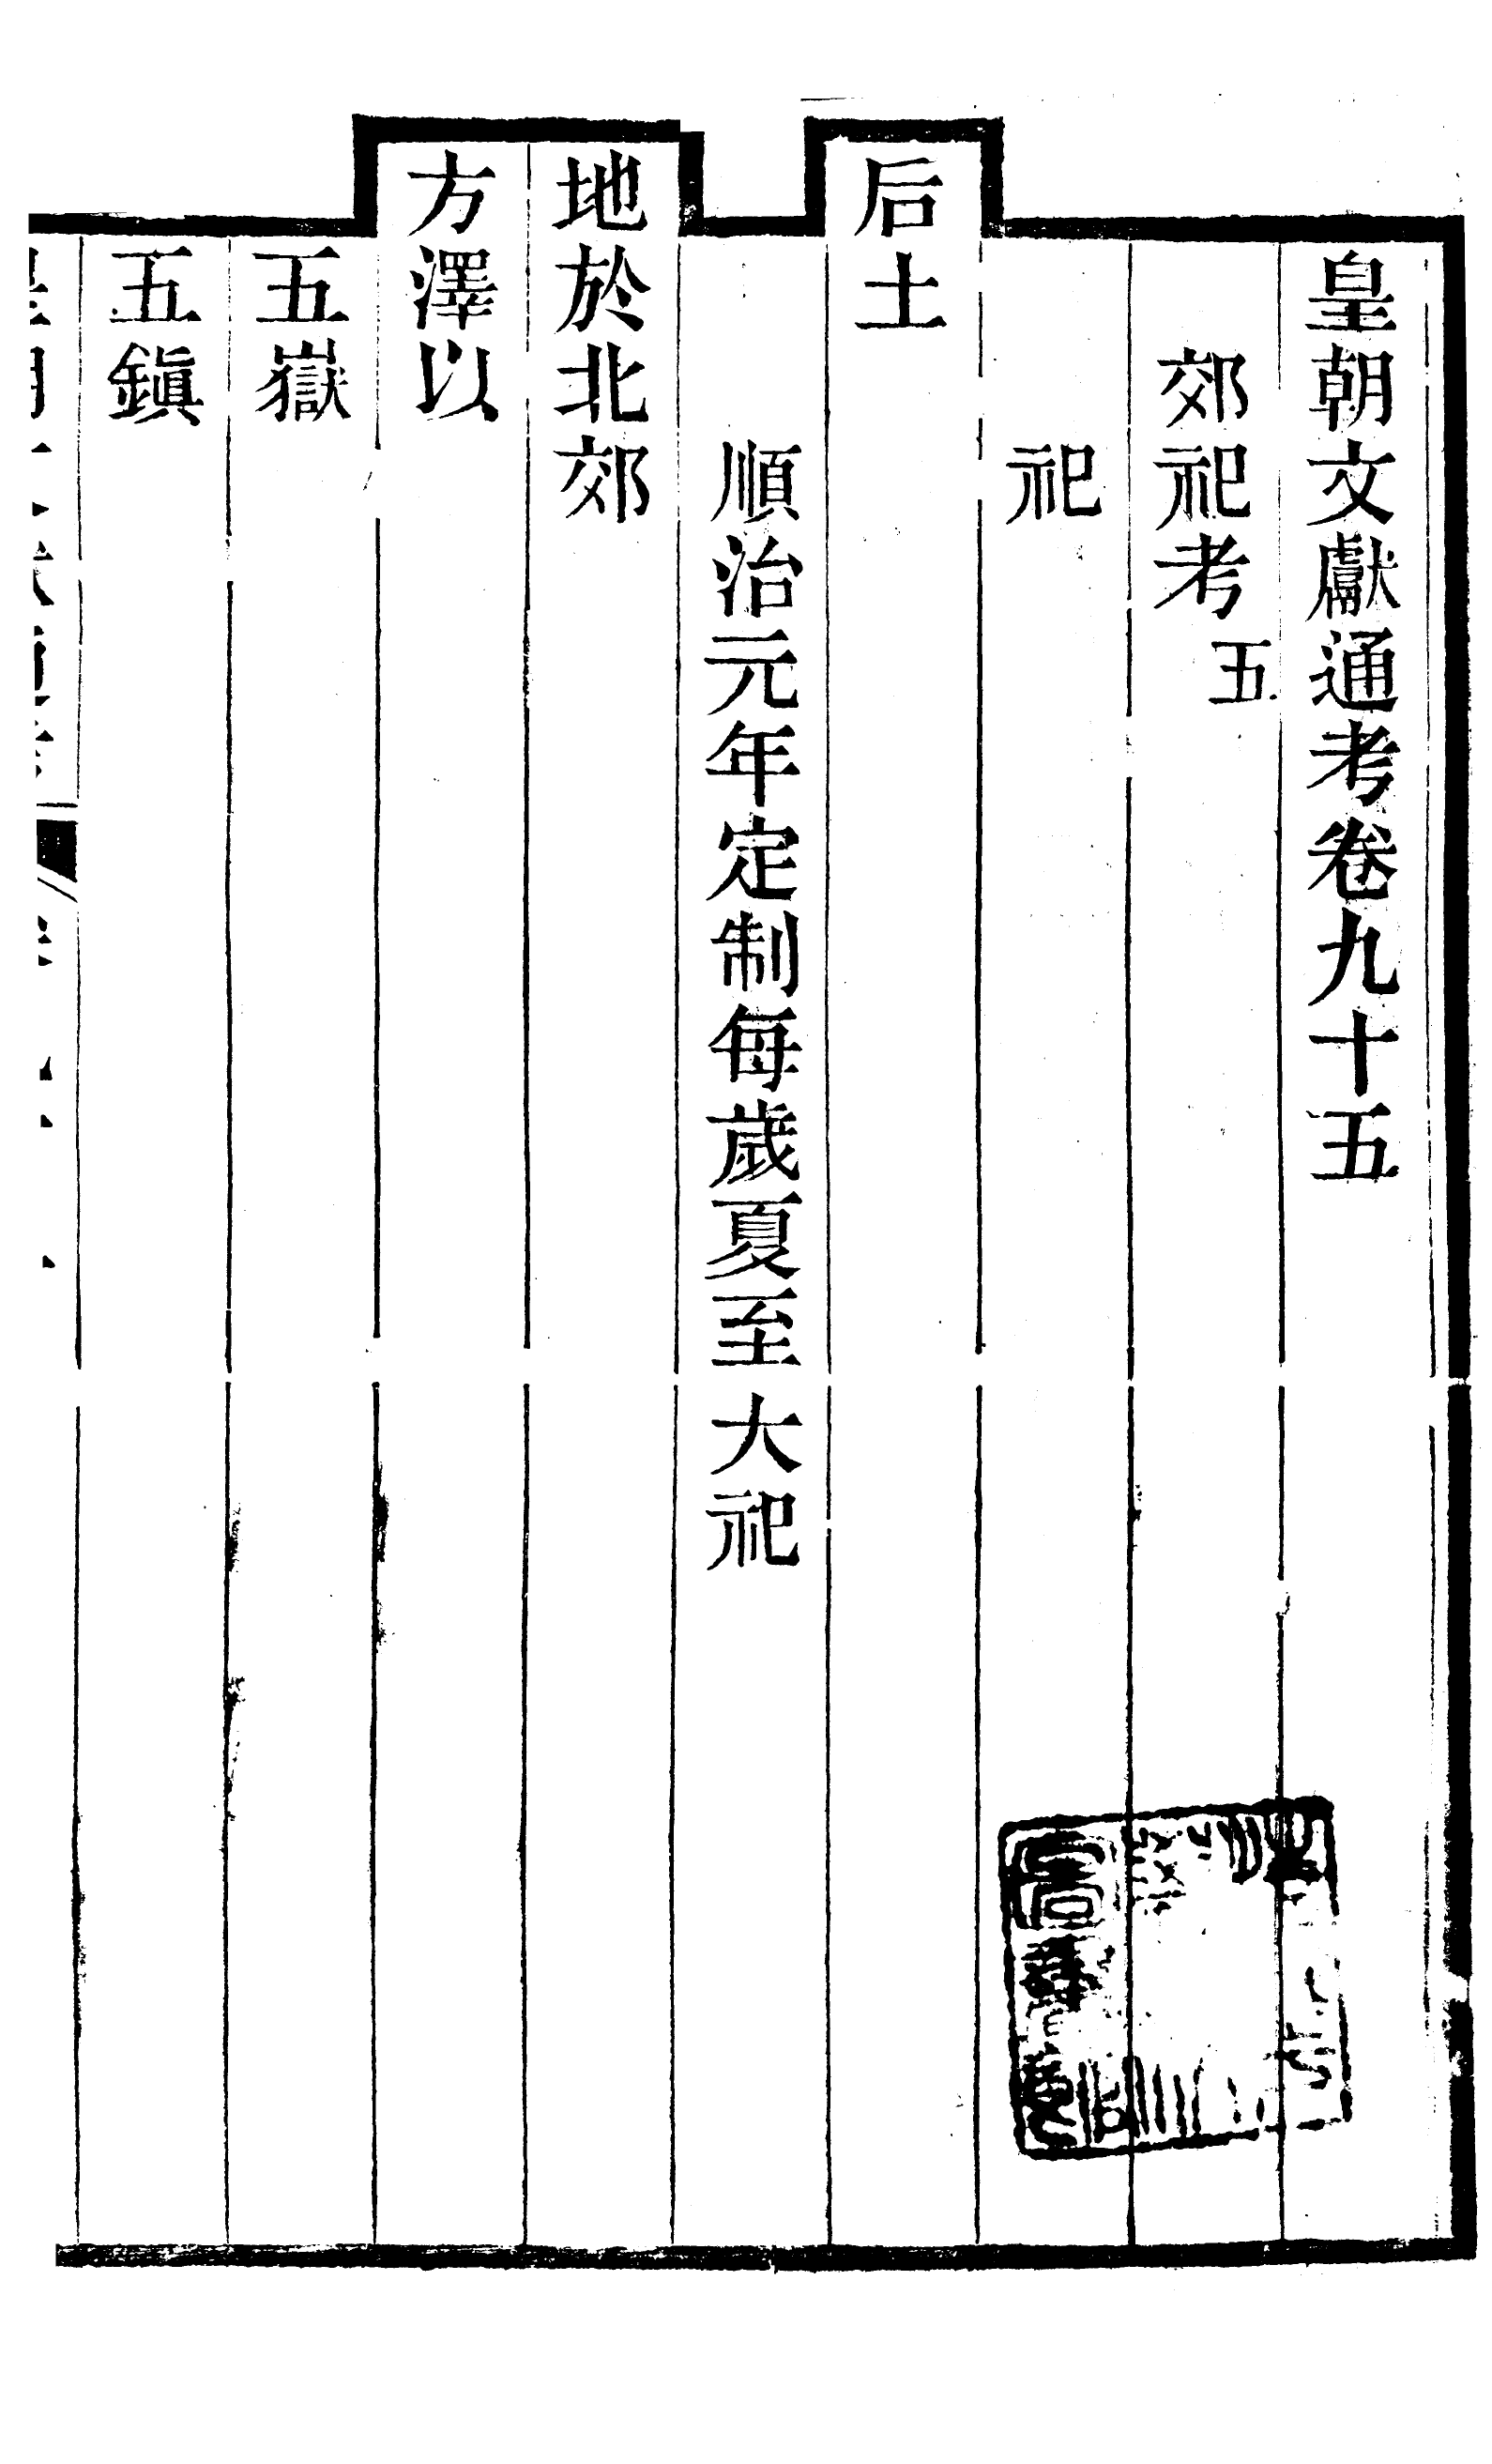 皇朝文獻通考卷九十五
郊祀考五
祀
后土
順治元年定制每歲夏至大祀
地於北郊
方澤以
五嶽
五鎭